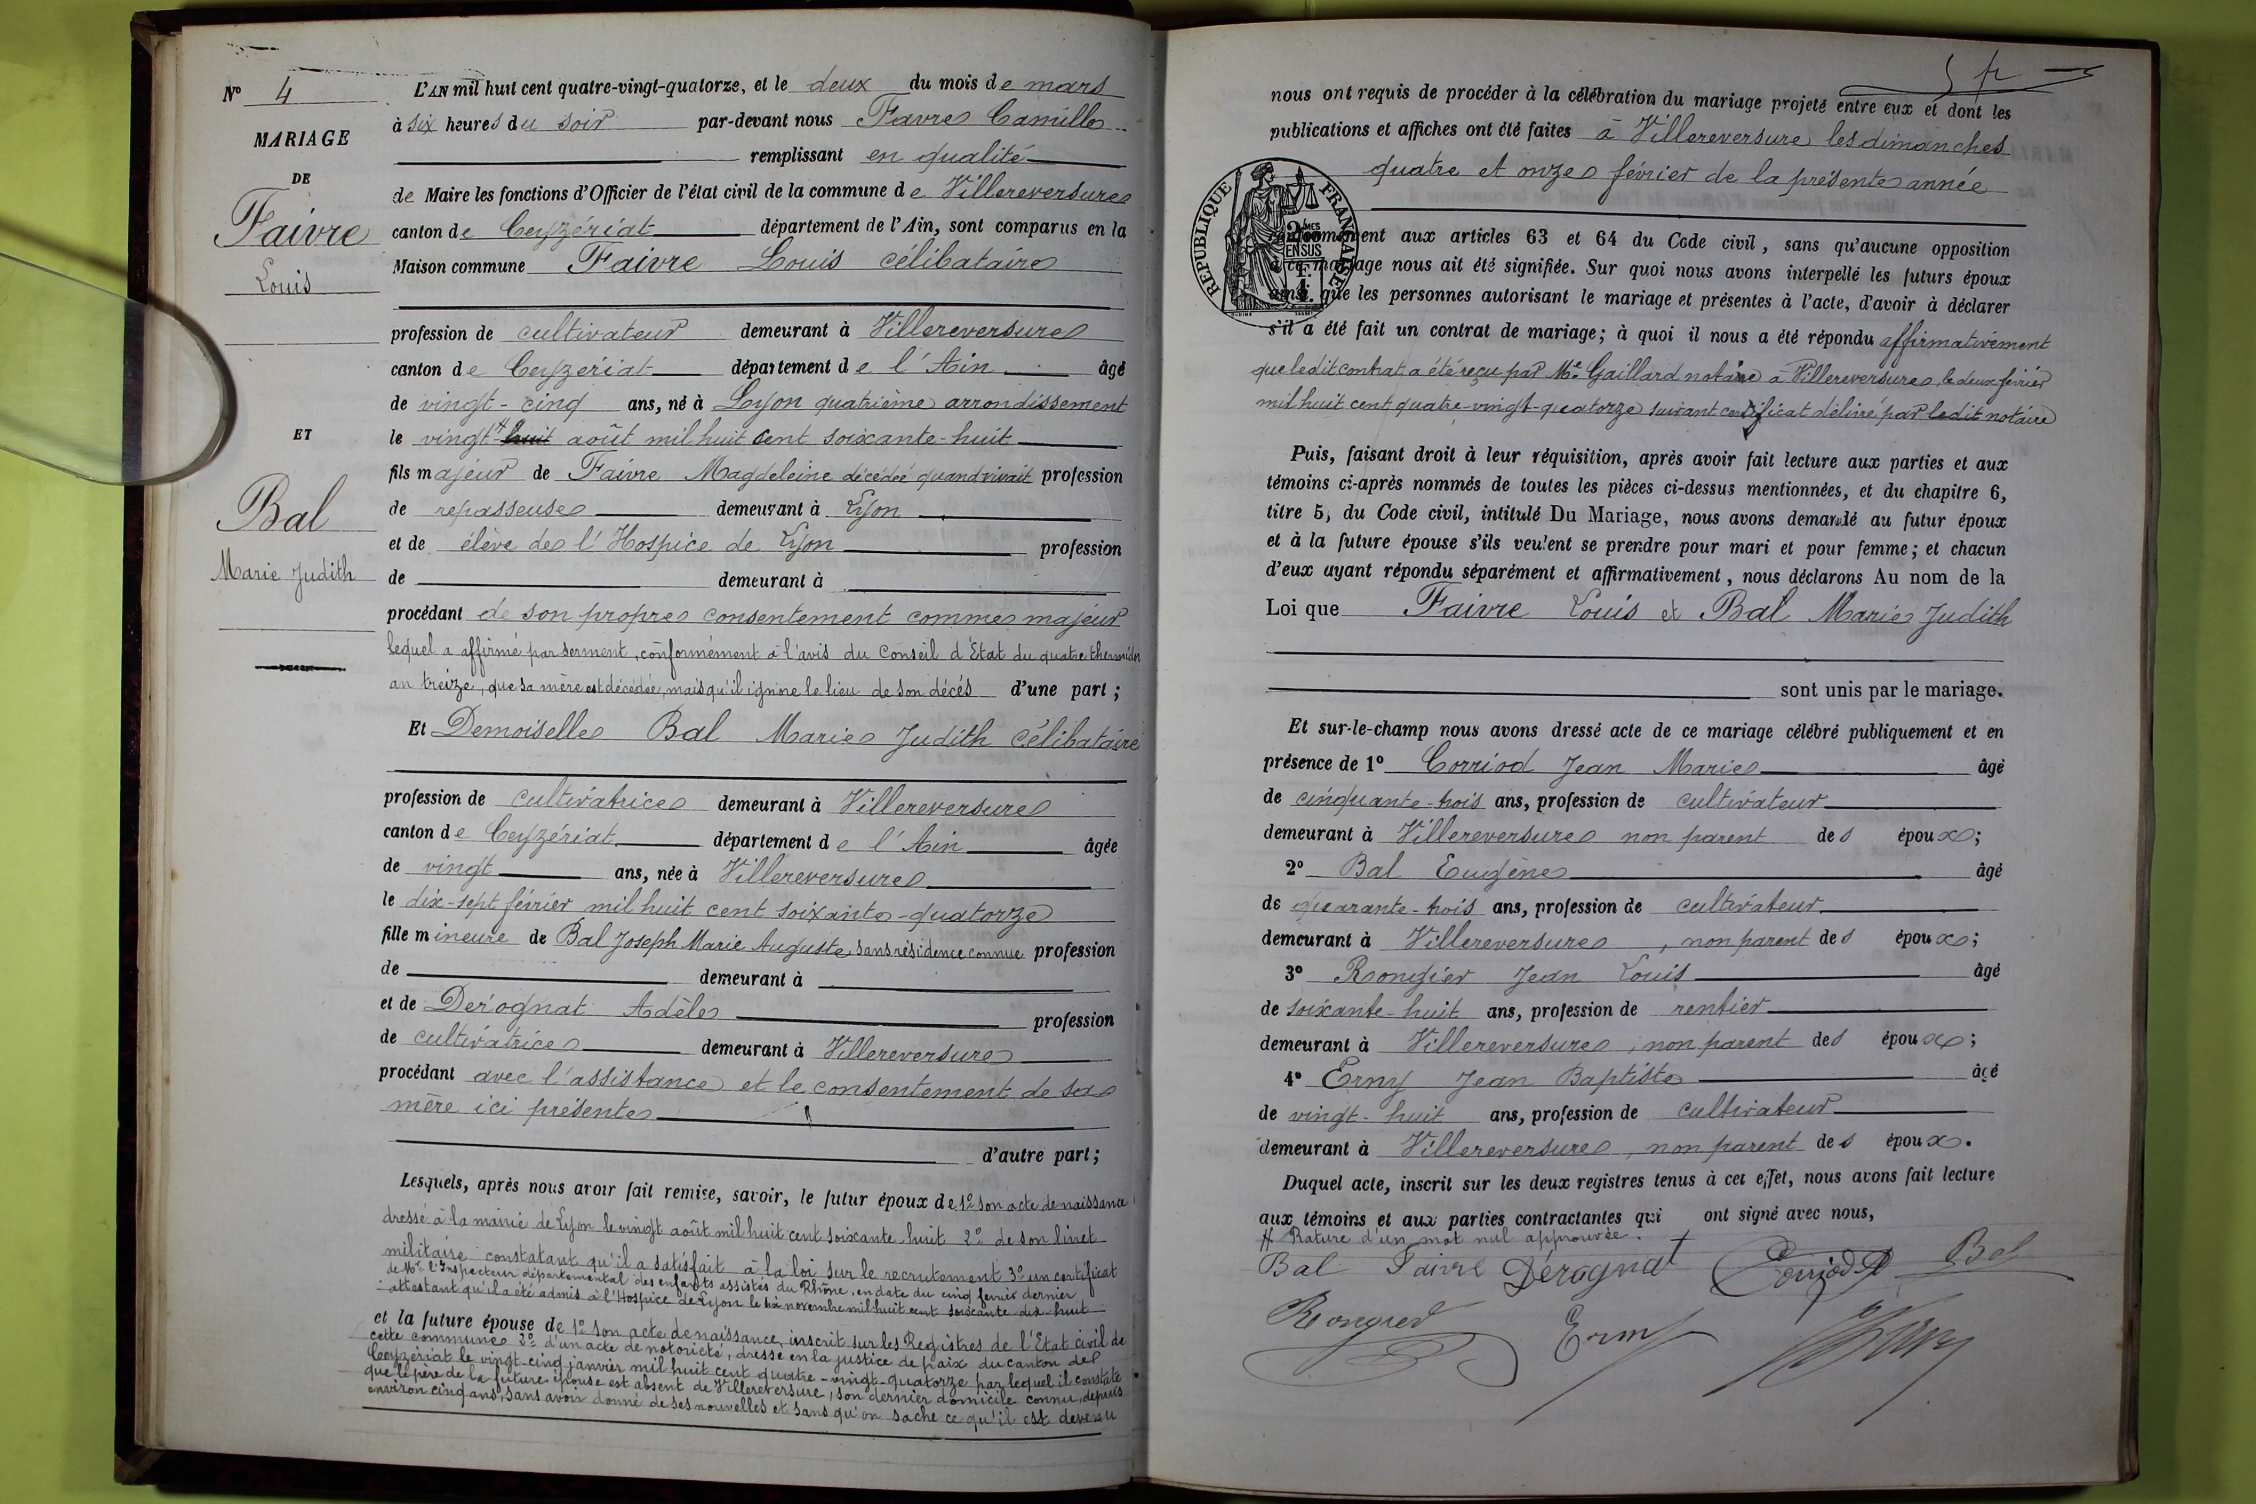 N° 4
MARIAGE
DE
Faivre
Louis
ET
Bal
Marie Judith
L'AN mil huit cent quatre-vingt-quatorze, et le deux du mois de mars
à six heures du soir par-devant nous Favre Camille
remplissant en qualité
de Maire les fonctions d'Officier de l'état civil de la commune de Villereversure
canton de Ceyzériat département de l'Ain, sont comparus en la
Maison commune Faivre Louis célibataire
profession de cultivateur demeurant à Villereversure
canton de Ceyzériat département de l'Ain âgé
de vingt-cinq ans, né à Lyon quatrième arrondissement
le vingt huit août mil huit cent soixante-huit
fils majeur de Faivre Magdeleine décédée quand vivait profession
de repasseuse demeurant à Lyon
et de élève de l'Hospice de Lyon profession
de demeurant à
procédant de son propre consentement comme majeur
lequel a affirmé par serment, conformément à l'avis du Conseil d'État du quatre thermidor
an treize, que sa mère est décédée, mais qu'il ignore le lieu de son décès d'une part ;
Et Demoiselle Bal Marie Judith célibataire
profession de cultivatrice demeurant à Villereversure
canton de Ceyzériat département de l'Ain âgée
de vingt ans, née à Villereversure
le dix-sept février mil huit cent soixante-quatorze
fille mineure de Bal Joseph Marie Auguste sans résidence connue profession
de demeurant à
et de Dérognat Adèle profession
de cultivatrice demeurant à Villereversure
procédant avec l'assistance et le consentement de sa
mère ici présente
d'autre part ;
Lesquels, après nous avoir fait remise, savoir, le futur époux de 1° son acte de naissance
dressé à la mairie de Lyon le vingt août mil huit cent soixante huit 2° de son livret
militaire constatant qu'il a satisfait à la loi sur le recrutement 3° un certificat
de Mr l'Inspecteur départemental des enfants assistés du Rhône, en date du cinq février dernier
attestant qu'il a été admis à l'Hospice de Lyon le novembre mil huit cent soixante dix-huit
et la future épouse de 1° son acte de naissance inscrit sur les Registres de l'Etat civil de
cette commune 2° d'un acte de notoriété, dressé en la justice de paix du canton de
Ceyzériat le vingt-cinq janvier mil huit cent quatre-vingt-quatorze par lequel il constate
que le père de la future épouse est absent de Villereversure, son dernier domicile connu, depuis
environ cinq ans, sans avoir donné de ses nouvelles et sans qu'on sache ce qu'il est devenu
nous ont requis de procéder à la célébration du mariage projeté entre eux et dont les
publications et affiches ont été faites à Villereversure les dimanches
quatre et onze février de la présente année
RÉPUBLIQUE FRANÇAISE
conformément aux articles 63 et 64 du Code civil, sans qu'aucune opposition
à ce mariage nous ait été signifiée. Sur quoi nous avons interpellé les futurs époux
ainsi que les personnes autorisant le mariage et présentes à l'acte, d'avoir à déclarer
s'il a été fait un contrat de mariage ; à quoi il nous a été répondu affirmativement
que ledit contrat a été reçu par Me Gaillard notaire à Villereversure, le deux février
mil huit cent quatre-vingt-quatorze suivant certificat délivré par ledit notaire
Puis, faisant droit à leur réquisition, après avoir fait lecture aux parties et aux
témoins ci-après nommés de toutes les pièces ci-dessus mentionnées, et du chapitre 6,
titre 5, du Code civil, intitulé Du Mariage, nous avons demandé au futur époux
et à la future épouse s'ils veulent se prendre pour mari et pour femme ; et chacun
d'eux ayant répondu séparément et affirmativement, nous déclarons Au nom de la
Loi que Faivre Louis et Bal Marie Judith
sont unis par le mariage.
Et sur-le-champ nous avons dressé acte de ce mariage célébré publiquement et en
présence de 1° Corriod Jean Marie âgé
de cinquante-trois ans, profession de cultivateur
demeurant à Villereversure non parent des époux ;
2° Bal Eugène âgé
de quarante-trois ans, profession de cultivateur
demeurant à Villereversure, non parent des époux ;
3° Rongier Jean Louis âgé
de soixante-huit ans, profession de rentier
demeurant à Villereversure, non parent des époux ;
4° Erny Jean Baptiste âgé
de vingt-huit ans, profession de cultivateur
demeurant à Villereversure, non parent des époux.
Duquel acte, inscrit sur les deux registres tenus à cet effet, nous avons fait lecture
aux témoins et aux parties contractantes qui ont signé avec nous,
# Rature d'un mot nul approuvée.
Bal Faivre Dérognat Corriod Bal
Rongier Erny